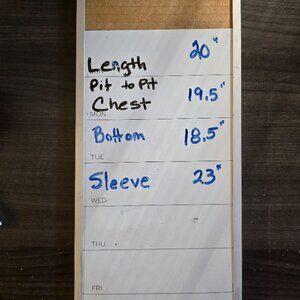 Length 20"
Pit to Pit
Chest 19.5"
MON
Bottom 18.5"
TUE
Sleeve 23"
WED
THU
FRI